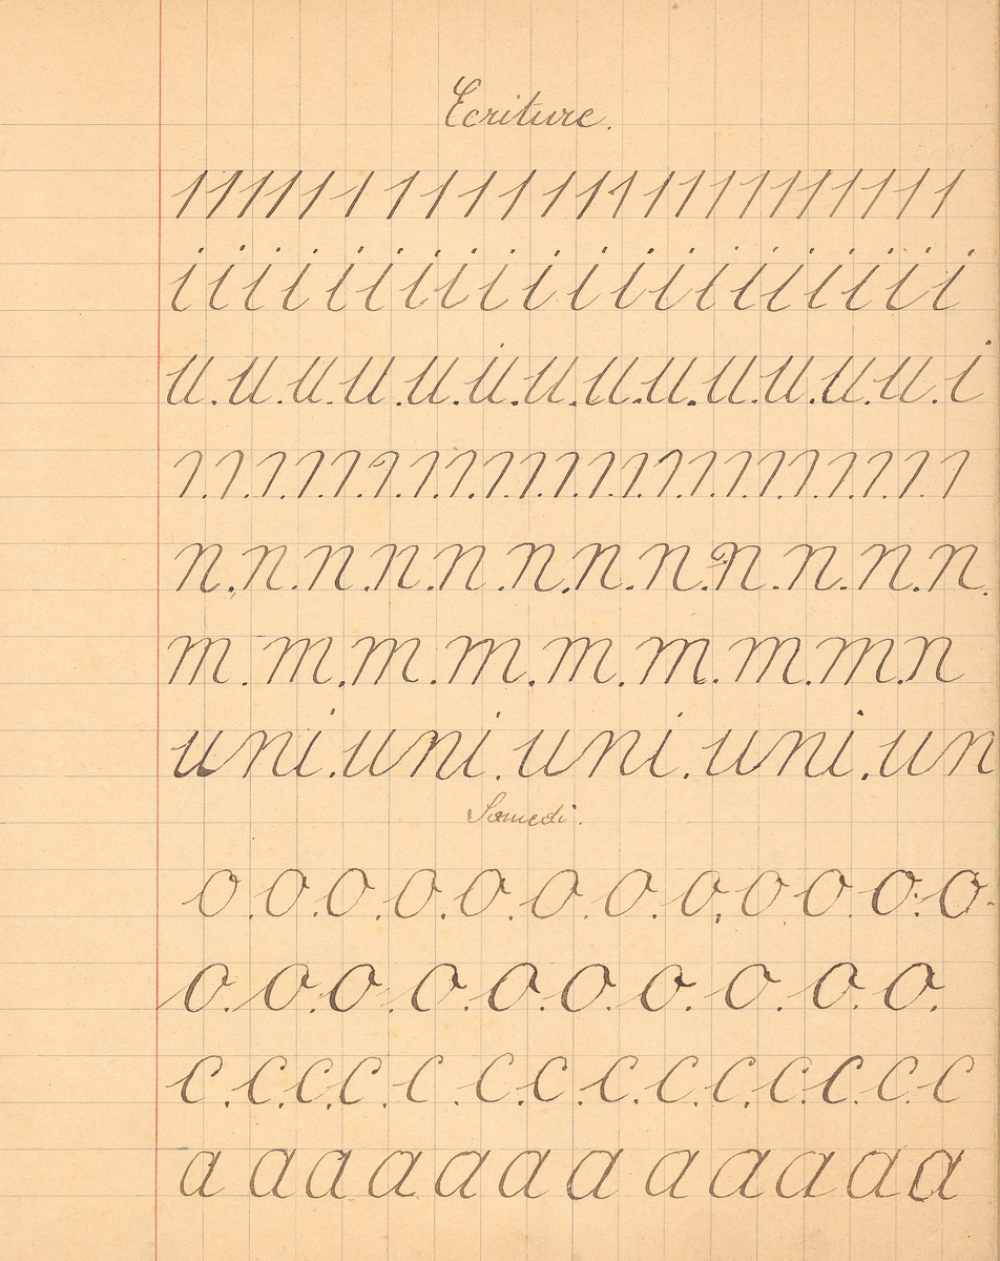 Ecriture.
11111111111111111111111111
iiiiiiiiiiiiiiiiiiii
u.u.u.u.u.u.u.u.u.u.u.u.u.i
1.1.1.1.1.1.1.1.1.1.1.1.1.1.1.1.1.1.1.1.1.1
n.n.n.n.n.n.n.n.n.n.n.n.
m.m.m.m.m.m.m.m.n
uni.uni.uni.uni.un
Samedi.
o.o.o.o.o.o.o.o.o.o.o.o.
o.o.o.o.o.o.o.o.o.o.
c.c.c.c.c.c.c.c.c.c.c.c.c.c
a a a a a a a a a a a a